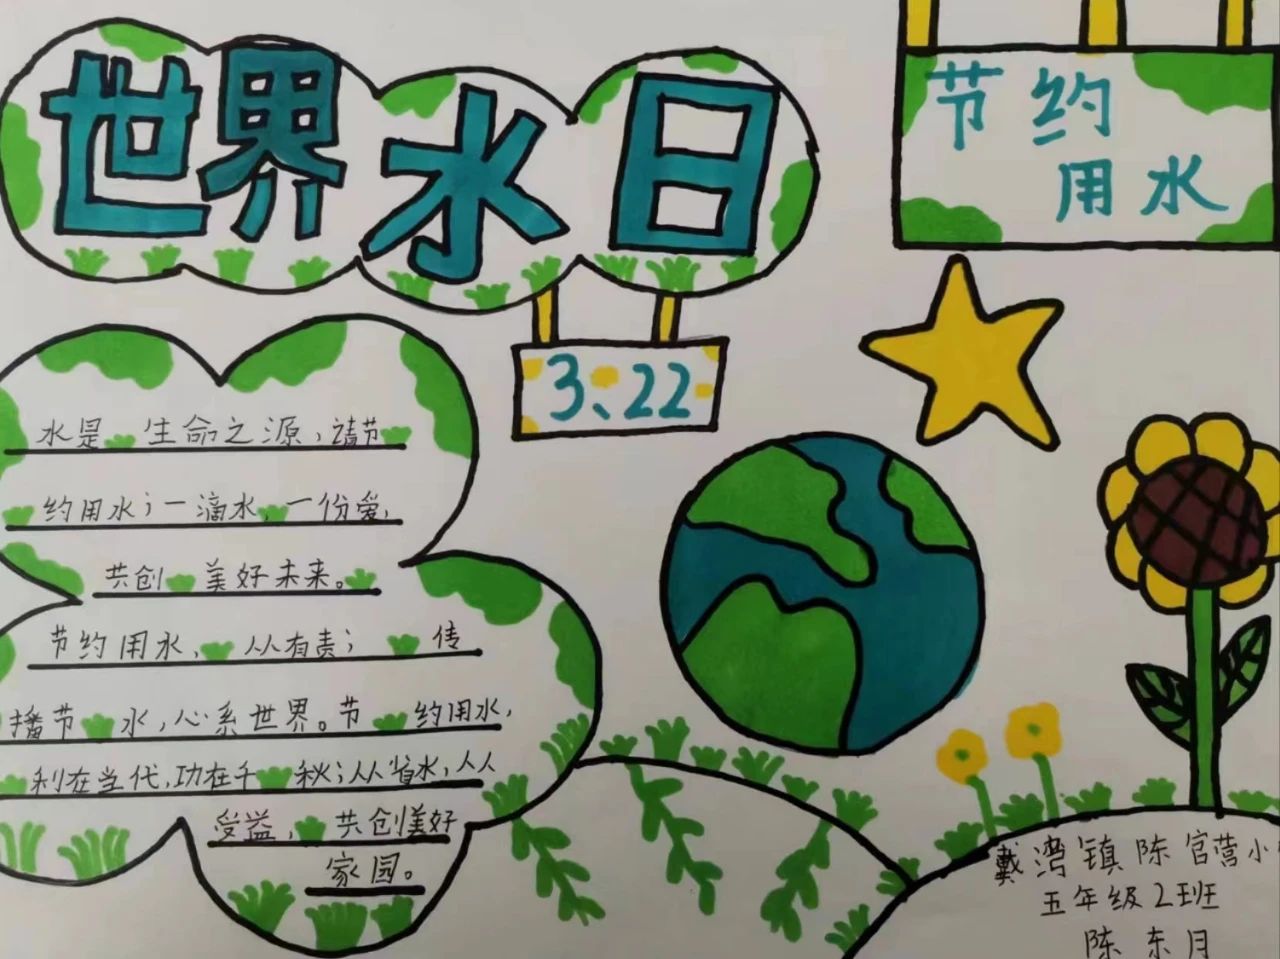 世界水日
节约
用水
3、22
水是生命之源，请节
约用水；一滴水，一份爱，
共创美好未来。
节约用水，从有责；传
播节水，心系世界。节约用水，
利在当代，功在千秋；从省水，从
受益，共创美好
家园。
戴湾镇陈官营小
五年级2班
陈东月